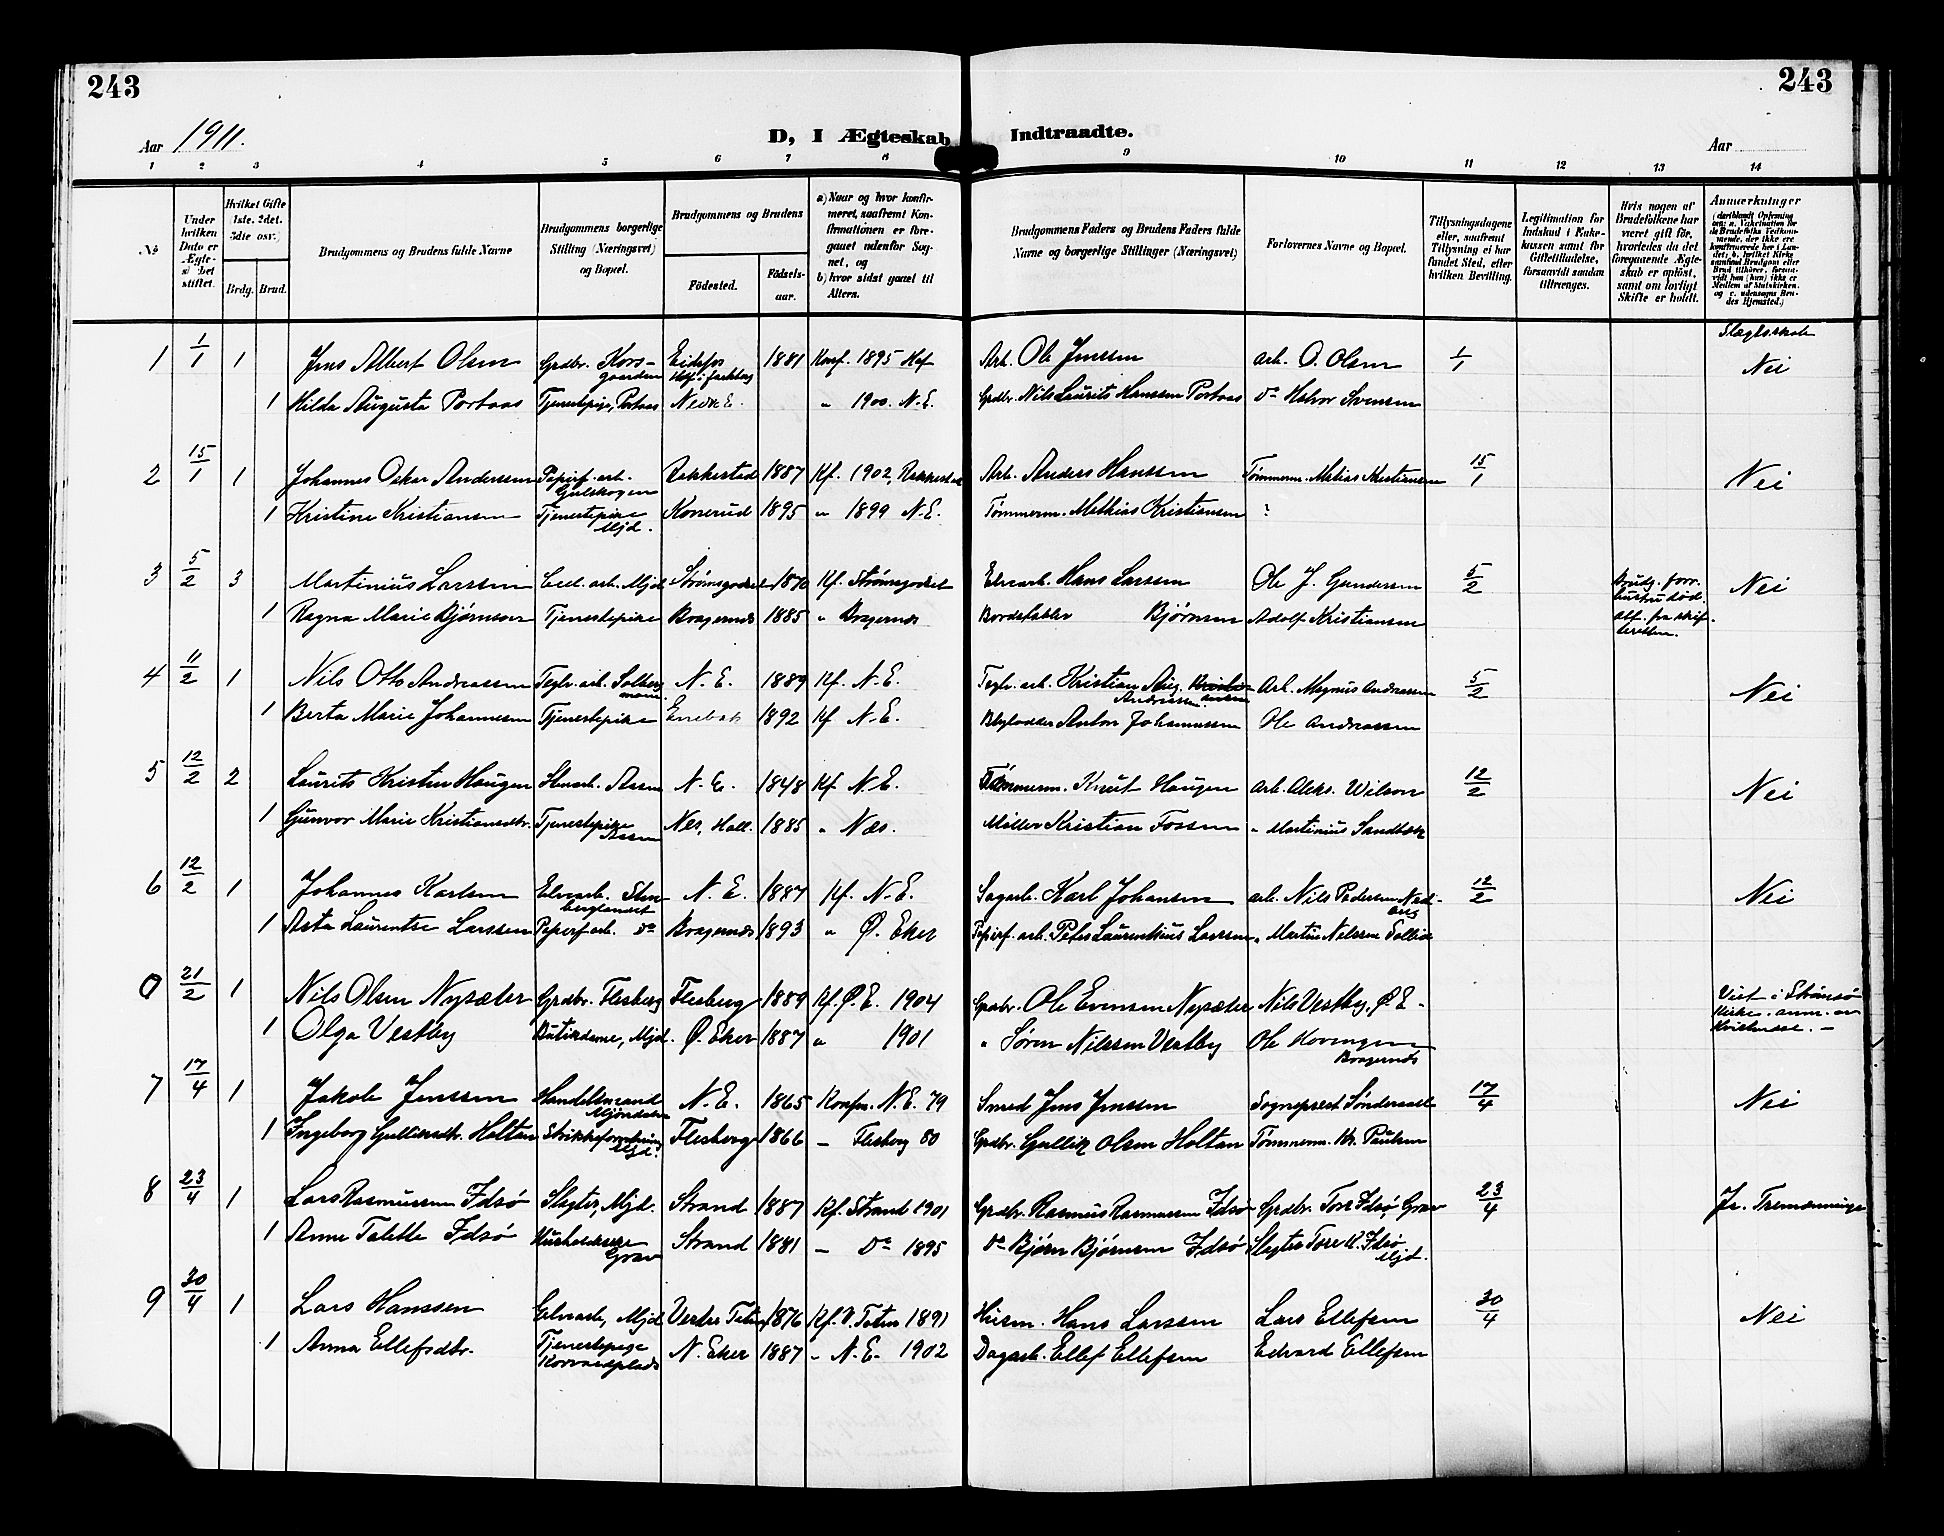 243
243
Aar 1911.
D, I Ægteskab Indtraadte.
Aar
1 2 3 4 5 6 7 8 9 10 11 12 13 14
No
Under hvilken Dato er Ægteskabet stiftet.
Hvilket Gifte 1ste. 2det. 3die osv.)
Brdg. Brud.
Brudgommens og Brudens fulde Navne
Brudgommens borgerlige Stilling (Næringsvei) og Bopæl.
Brudgommens og Brudens
Fødested.
Fødselsaar.
a) Naar og hvor konfirmeret, saafremt Konfirmationen er foregaaet udenfor Sognet, og
b) hvor sidst gaaet til Alters.
Brudgommens Faders og Brudens Faders fulde Navne og borgerlige Stillinger (Næringsvei)
Forlovernes Navne og Bopæl.
Tillysningsdagene eller, saafremt Tillysning ei har fundet Sted, efter hvilken Bevilling.
Legitimation for Indskud i Enkekassen samt for Giftetilladelse, forsaavidt saadan tiltrænges.
Hvis nogen af Brudefolkene har været gift før, hvorledes da det foregaaende Ægteskab er opløst, samt om lovligt Skifte er holdt.
Anmærkninger
1 1/1 1 Jens Albert Olsen Grdbr. Korsgaarden Eidsfos 1881 Konf. 1895 Hof Arb. Ole Jenssen arb. O. Olsen 1/1 Slægtsskab Nei
1 Hilda Augusta Portaas Tjenestepige, Portaas Nedre E. " 1900. N.E. Grdbr. Nils Laurits Hanssen Portaas Do Halvor Svensen
2 15/1 1 Johannes Oskar Anderssen Papirf. arb. Gulskogen Rakkestad 1887 Kf. 1902, Rakkestad Arb. Anders Hanssen Tømmerm. Matias Kristiansen 15/1 Nei
1 Kristine Kristiansen Tjenestepike Mjd. Konnerud 1895 " 1899 N.E. Tømmerm. Mathias Kristiansen ?
3 5/2 3 Martinius Larssen Cell. arb. Mjd Strømsgodset 1870 Kf. Strømsgodset Elvearb. Hans Larssen Ole J. Gundersen 5/2 Brudg. forr. hustru død. att. fra skifteretten. Nei
1 Ragna Marie Bjørnsen Tjenestepike Bragernes 1885 " Bragernes Bordstabler Bjørnsen Adolf Kristiansen
4 11/2 1 Nils Otto Andreassen Teglv. arb. Solbergmoen N.E. 1889 Kf. N.E. Teglv. arb. Kristian Aug. Andreassen Arb. Magnus Andreassen 5/2 Nei
1 Berta Marie Johannesen Tjenestepike Enebak 1892 Kf N.E. Anton Johannessen Ole Andreassen
5 12/2 2 Laurits Kristian Haugen Stenarb. Aasen N.E. 1848 Kf N.E. Tømmerm. Knut Haugen arb. Aleks. Wilson 12/2 Nei
1 Gunvor Marie Kristiansdtr. Tjenestepike Aasen Nes, Hall. 1885 " Næs. Møller Kristian Fossen " Martinius Sandbæk
6 12/2 1 Johannes Karlsen Elvearb. Stenberglandet N.E. 1887 Kf. N.E. Sagarb. Karl Johansen arb. Nils Pedersen 12/2 Nei
1 Asta Laurentse Larssen Papirf. arb. do Bragernes 1893 " Ø. Eker Papirf. arb. Peter Laurentsius Larssen " Martin Nilssen Sollie
0 21/2 1 Nils Olsen Nysæter Grdbr. Flesberg Flesberg 1889 Kf. Ø.E. 1904 Grdbr. Ole Evensen Nysæter Nils Vestby, Ø.E. Viet i Strømsø Kirke.
1 Olga Vestby Butikdame, Mjd. Ø. Eker 1887 " 1901 " Søren Nilssen Vestby Ole Hovengen Bragernes
7 17/4 1 Jakob Jenssen Handelsmand Mjøndalen N.E. 1865 Konfm. N.E. 79 Smed Jens Jenssen Sogneprest Sønderaal 17/4 Nei
1 Ingeborg Gulliksdtr. Holtan Strikkeforretning Mjd. Flesberg 1866 – Flesberg 80 Grdbr. Gullik Olsen Holtan Tømmerm. Kr. Paulsen
8 23/4 1 Lars Rasmussen Idsø Slagter, Mjd. Strand 1887 Kf. Strand 1901 Grdbr. Rasmus Rasmussen Idsø Grdbr. Tore Idsø, Grav 23/4 Ja. Tremænninge
1 Anne Talette Idsø Husholderske Grav Strand 1881 – Do 1895 Do Bjørn Bjørnsen Idsø Slagter Tore R. Idsø Mjd.
9 30/4 1 Lars Hanssen Elvearb, Mjd Vestre Toten 1876 Kf. V. Toten 1891 Husm. Hans Larssen Lars Ellefsen 30/4 Nei
1 Anna Ellefsdtr. Tjenestepige N. Eker 1887 " N.E. 1902 Dagarb. Ellef Ellefsen Edvard Ellefsen